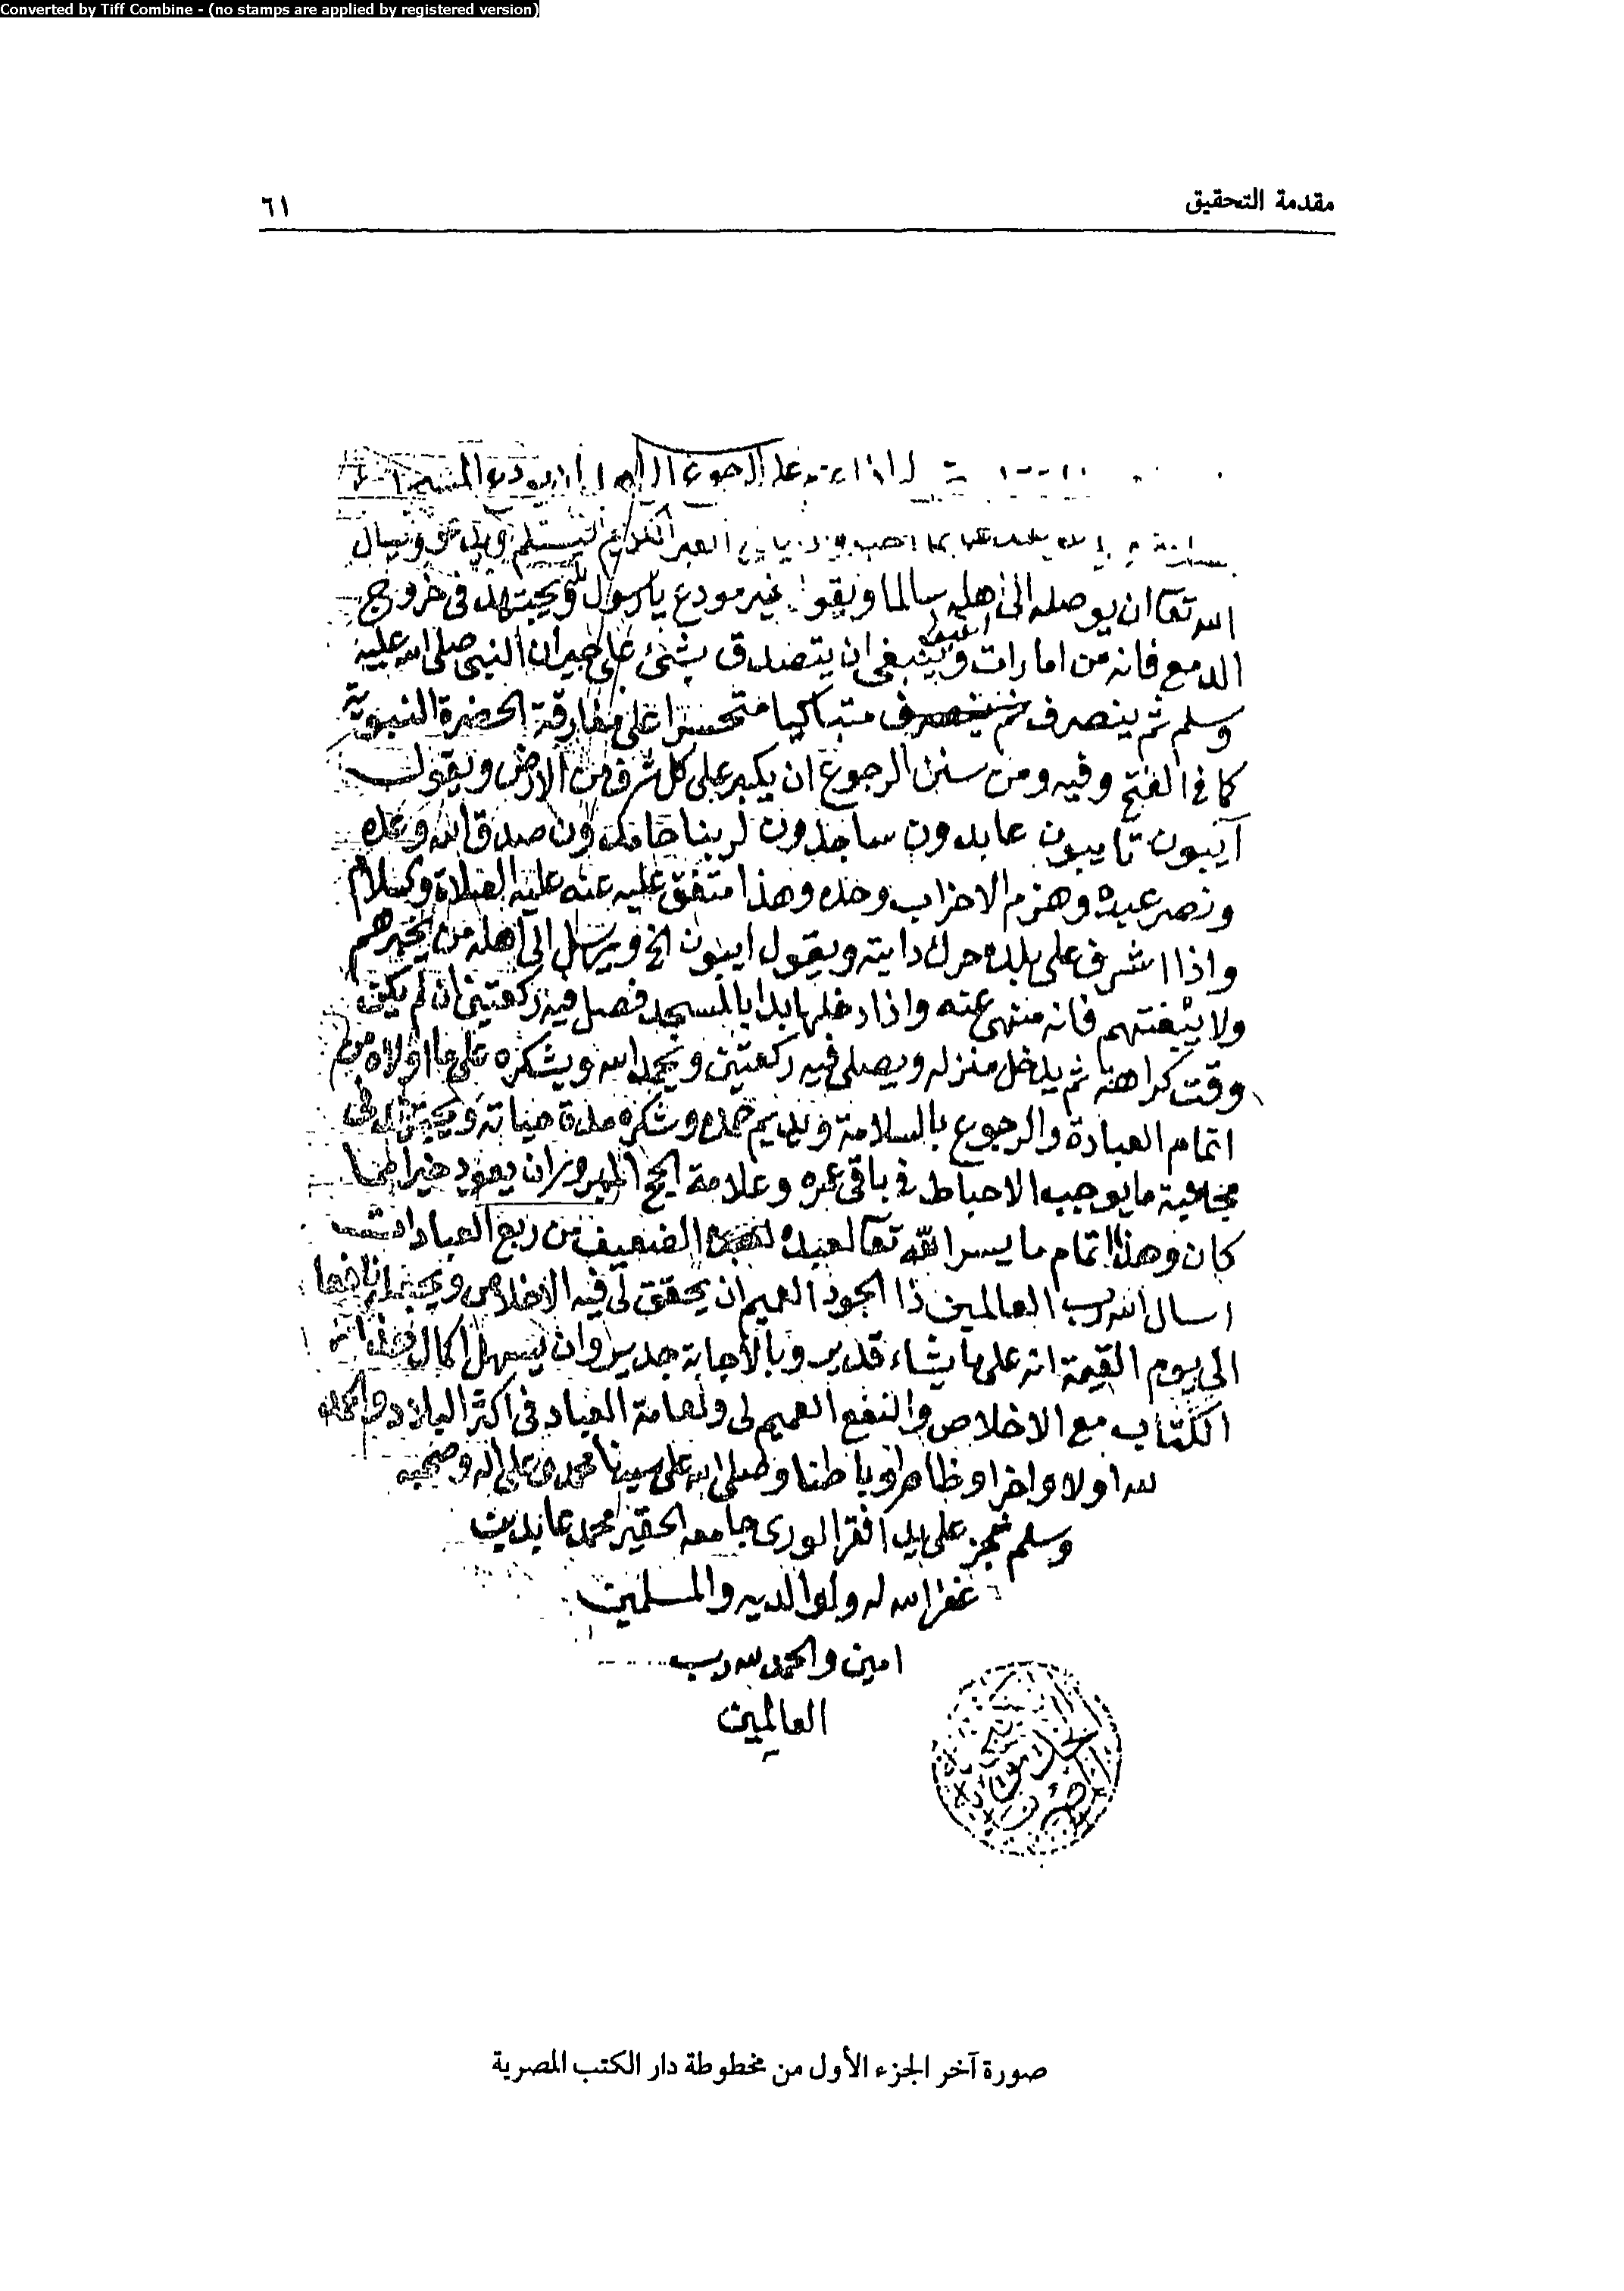 Converted by Tiff Combine - (no stamps are applied by registered version)
مقدمة التحقيق ٦١
اذا على الرجوع الى ان يودع المسجد
بما احب القبر الكريم فيسلم ويدعو ويسال
الله تعا ان يوصله الى اهله سالما ويقول غير مودع يا رسول الله ويجتهد فى خروج
الدمع فانه من امارات القبول وينبغى ان يتصدق بشئ على جيران النبى صلى الله عليه
وسلم ثم ينصرف متباكيا متحسرا على مفارقة الحضرة النبوية
كما فى الفتح وفيه ومن سنن الرجوع ان يكبر على كل شرف من الارض ويقول
آيبون تايبون عابدون ساجدون لربنا حامدون صدق الله وعده
ونصر عبده وهزم الاحزاب وحده وهذا متفق عليه عنه عليه الصلاة والسلام
واذا اشرف على بلده حرك دابته ويقول ايبون الخ ويرسل الى اهله من يخبرهم
ولا يبغتهم فانه منهى عنه واذا دخلها بدا بالمسجد فصلى فيه ركعتين ان لم يكن
وقت كراهة ثم يدخل منزله ويصلى فيه ركعتين ويحمد الله ويشكره على ما اولاه من
اتمام العبادة والرجوع بالسلامة ويديم حمده وشكره مدة حياته ويجتهد فى
مجانبة ما يوجب الاحباط فى باقى عمره وعلامة الحج المبرور ان يعود خيرا مما
كان وهذا اتمام ما يسر الله تعا لعبده الضعيف من ربع العبادات
اسال الله رب العالمين ذا الجود العميم ان يحقق لى فيه الاخلاص ويجعله نافعا
الى يوم القيمة انه على ما يشاء قدير وبالاجابة جدير وان يسهل اكمال هذا
الكتاب مع الاخلاص والنفع العميم لى ولعامة العباد فى اكثر البلاد والحمد
لله اولا واخرا وظاهرا وباطنا وصلى الله على سيدنا محمد وعلى اله وصحبه
وسلم نجز على يد افقر الورى جامعه الحقير محمد عابدين
غفر الله له ولوالديه والمسلمين
امين والحمد لله رب
العالمين
صورة آخر الجزء الأول من مخطوطة دار الكتب المصرية